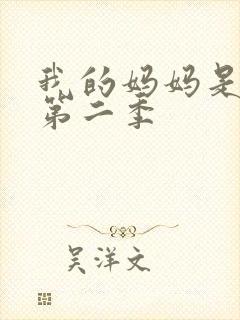 我的妈妈是
第二季
吴洋文